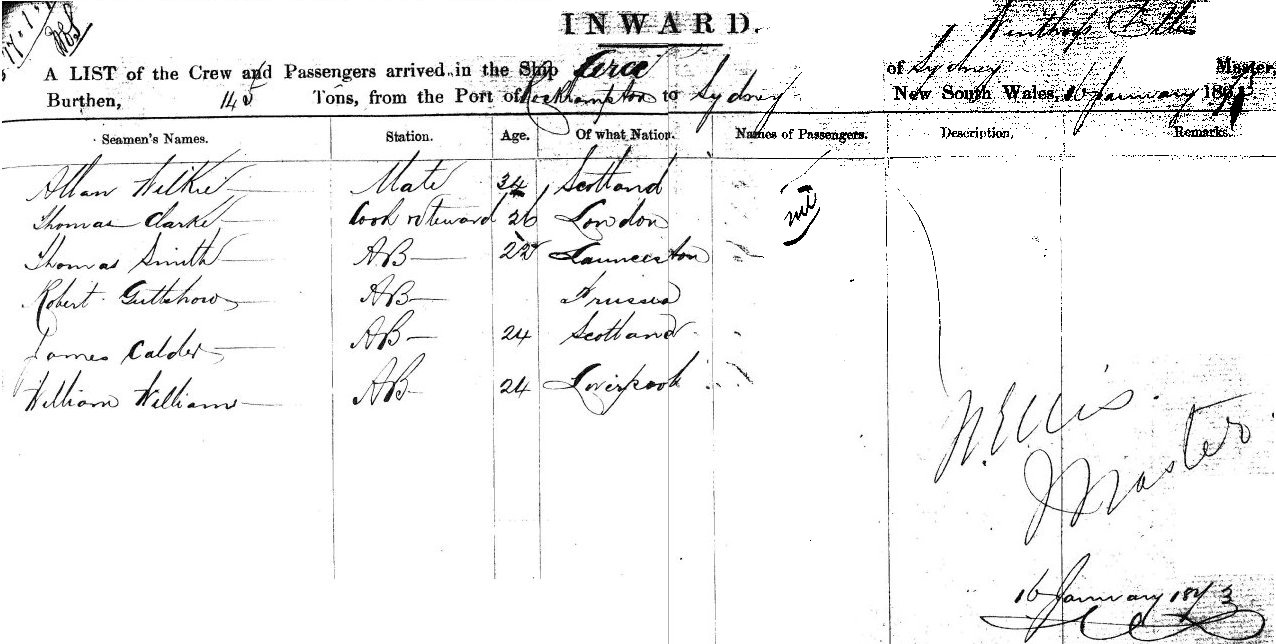 INWARD.
Winthrop Ellis
A LIST of the Crew and Passengers arrived in the Ship of Sydney Master,
Burthen, 145 Tons, from the Port of Rockhampton to Sydney New South Wales, 16 January 1873
Seamen's Names. Station. Age. Of what Nation. Names of Passengers. Description, Remarks.
Allan Wilkie Mate 34 Scotland nil
Thomas Clarke Cook & Steward 26 London
Thomas Smith AB 22 Launceston
Robert AB Prussia
James Calder AB 24 Scotland
William Williams AB 24 Liverpool
W. Ellis
Master
16 January 1873